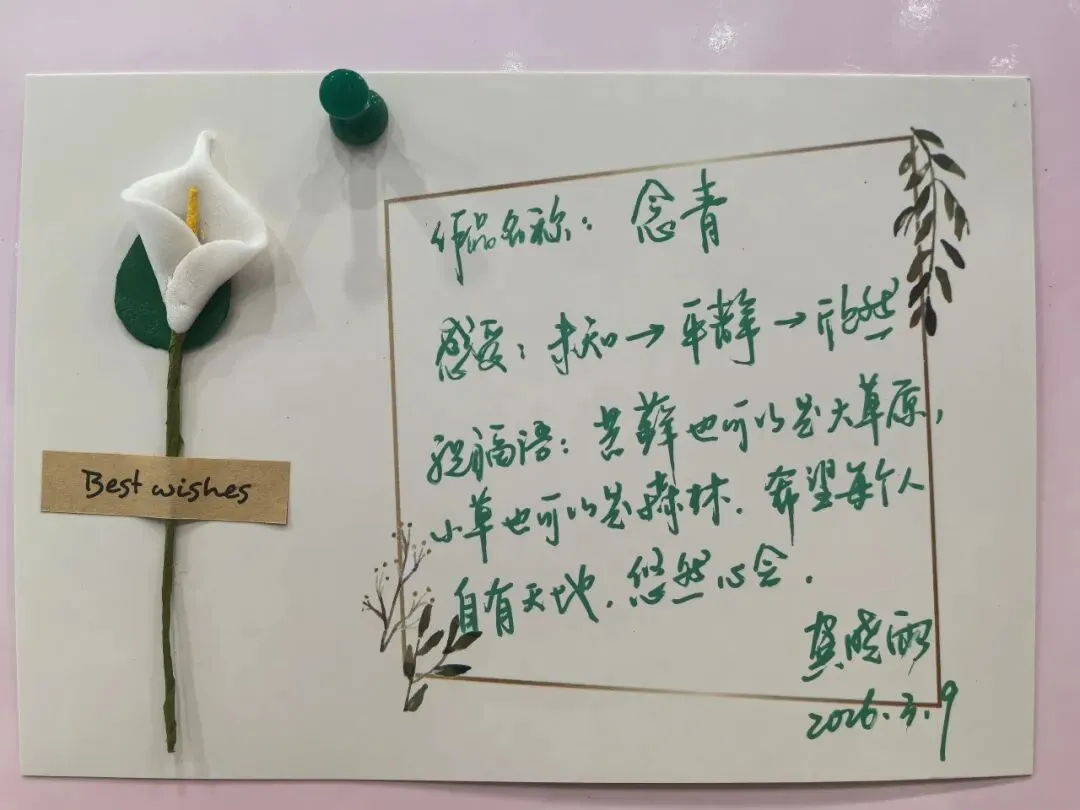 Best wishes
作品名称：念青
感受：未知→平静→欣然
祝福语：苔藓也可以是大草原，
小草也可以是森林．希望每个人
自有天地．悠然心会．
龚晓雨
2026.3.9